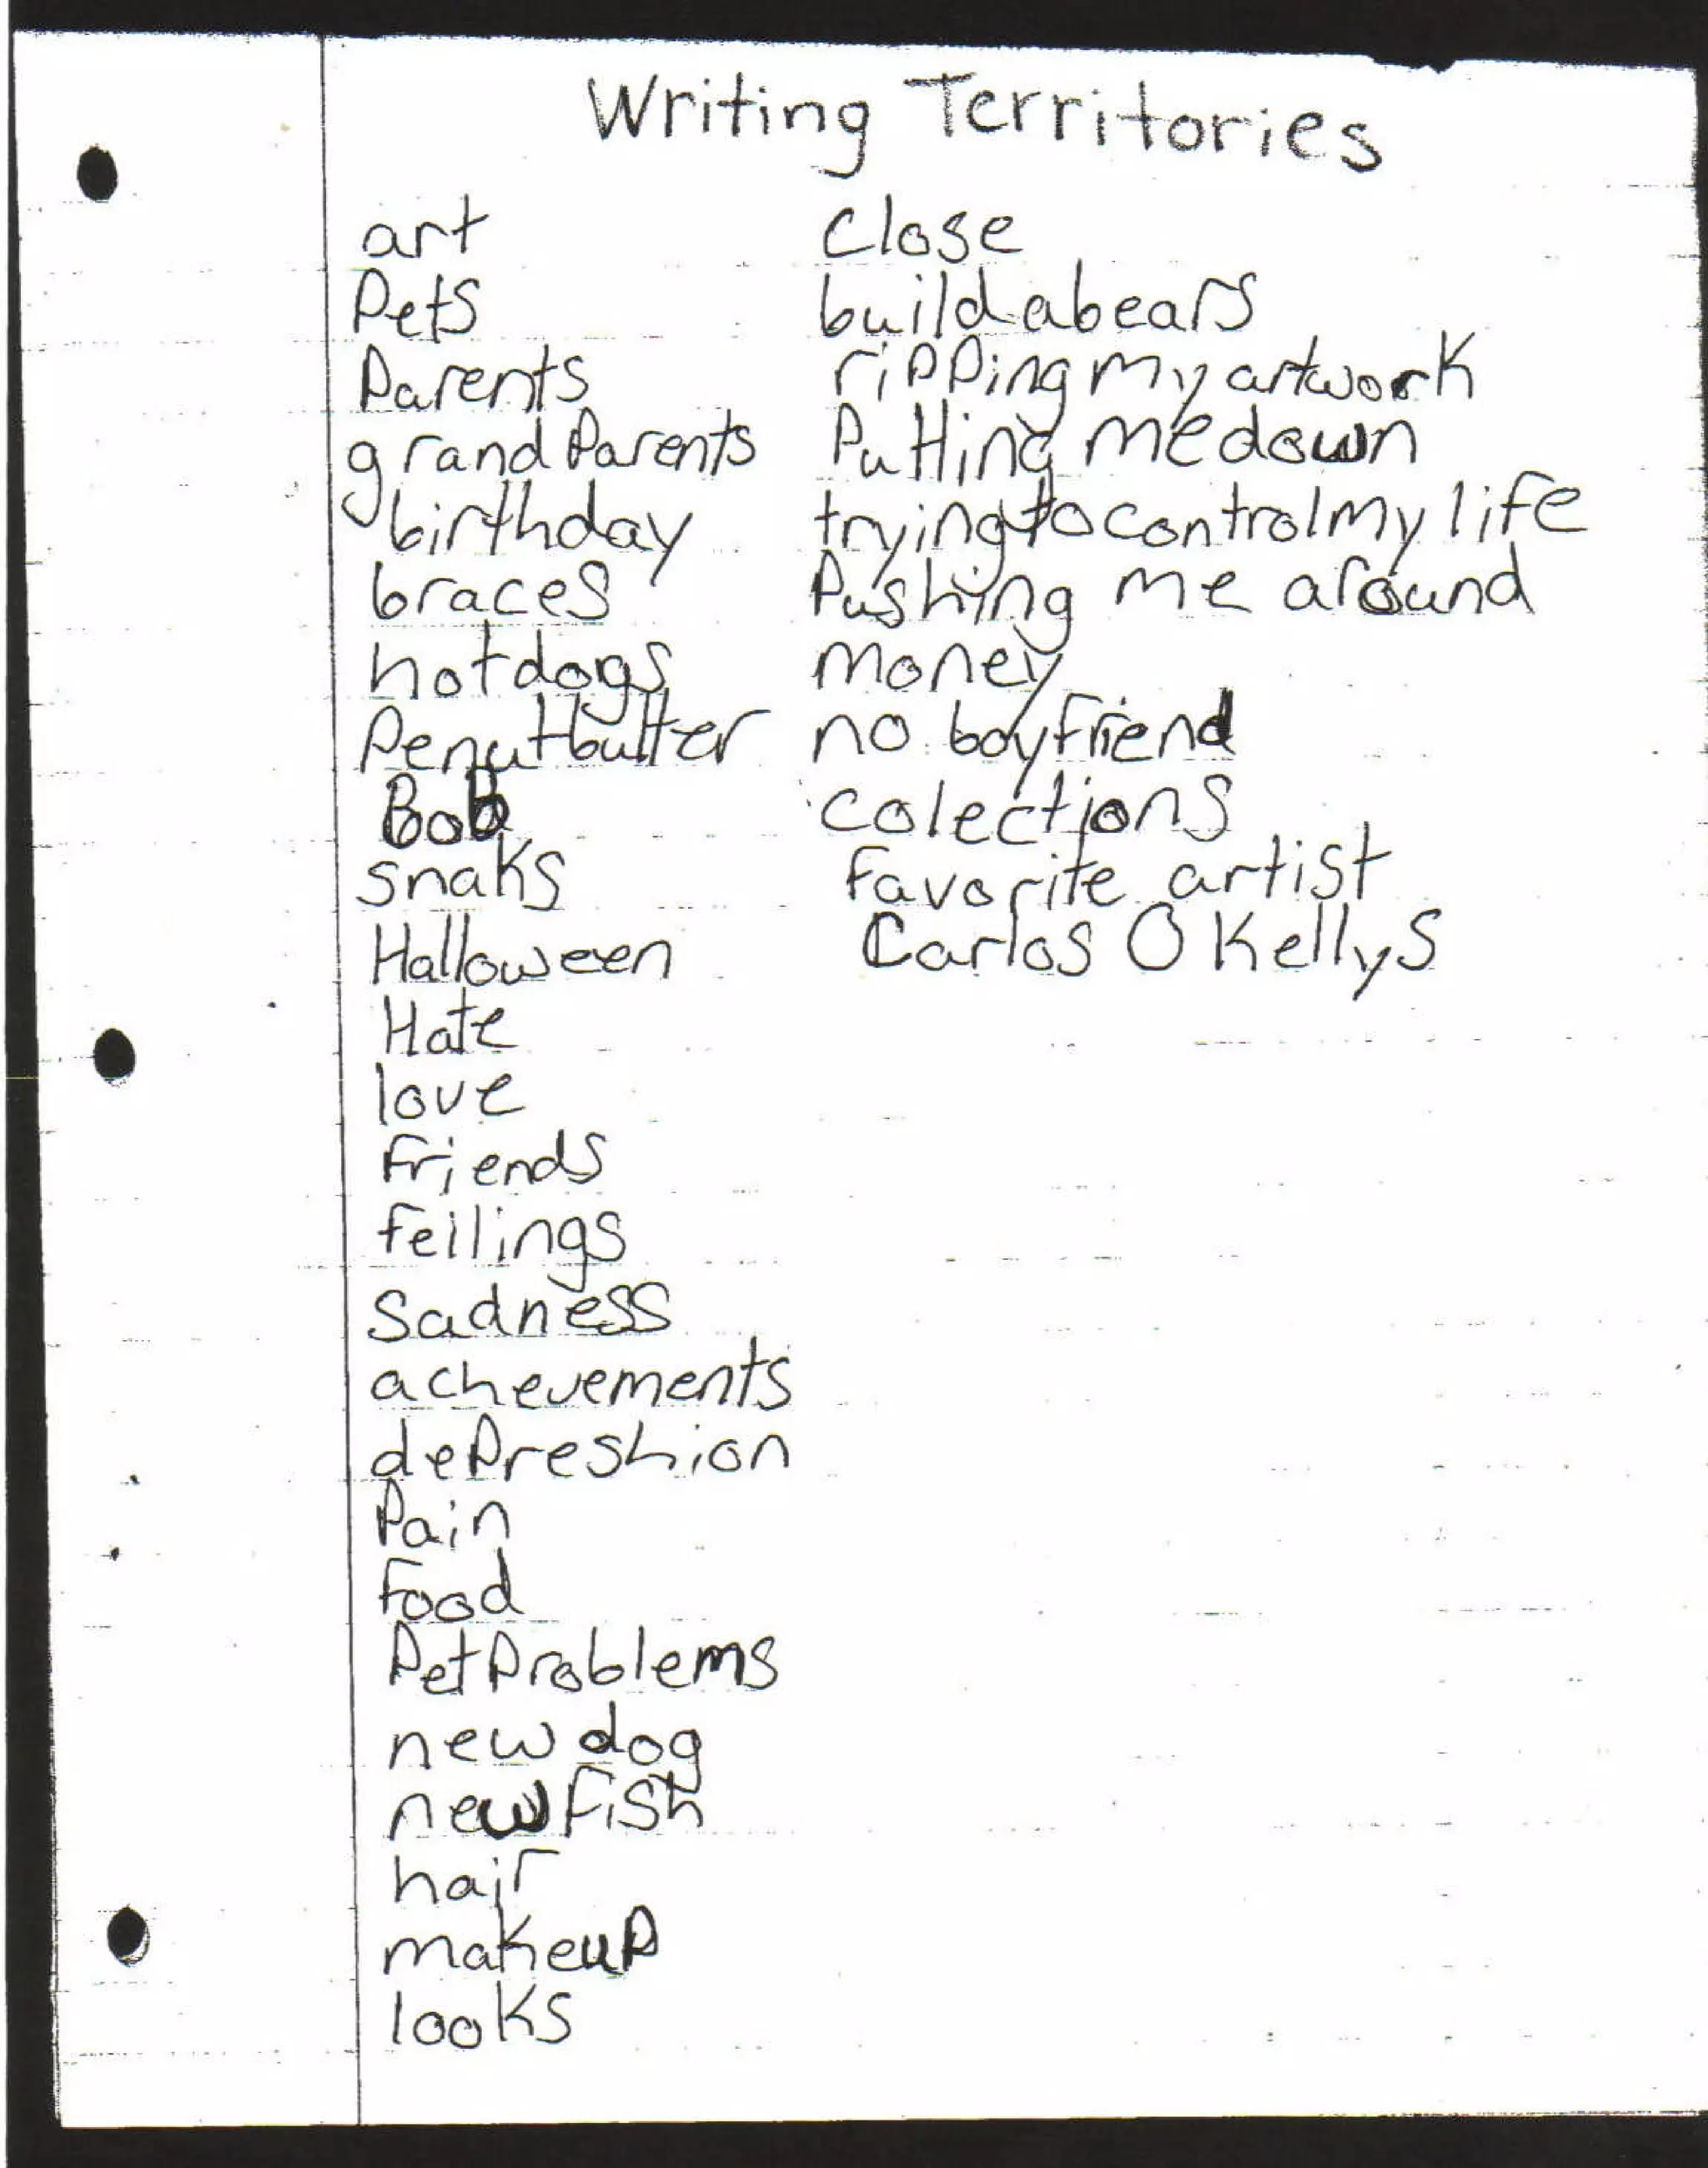 Writing Territories
art
Pets
Parents
grandParents
birthday
braces
hotdogs
Penutbutter
Bob
snaks
Halloween
Hate
love
friends
feilings
Sadness
achevements
dePreshion
Pain
food
PetProblems
new dog
new fish
hair
makeup
looks
close
buildabears
ripping my artwork
Putting me down
trying to control my life
Pushing me around
money
no boyfriend
colections
favorite artist
Carlos O Kellys